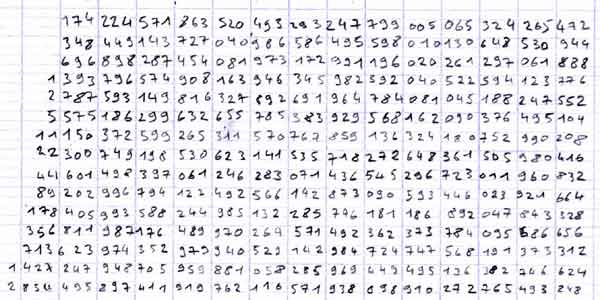 174 224 571 863 520 493 293 247 799 005 065 324 265 472
348 449 143 727 040 986 586 495 598 010 130 648 530 944
696 898 287 454 081 973 172 991 196 020 261 297 061 888
1 393 796 574 908 163 946 345 982 392 040 522 594 123 776
2 787 593 149 816 327 892 691 964 784 081 045 188 247 552
5 575 186 299 632 655 785 383 929 568 162 090 376 495 104
11 150 372 599 265 311 570 767 859 136 324 180 752 990 208
22 300 749 198 530 623 141 535 718 272 648 361 505 980 416
44 601 498 397 061 246 283 071 436 545 296 723 011 960 832
89 202 996 794 122 492 566 142 873 090 593 446 023 921 664
178 405 993 588 244 985 132 285 746 181 186 892 047 843 328
356 811 987 176 489 970 264 571 492 362 373 784 095 686 656
713 623 974 352 979 940 529 142 984 724 747 568 191 373 312
1 427 247 948 705 959 881 058 285 969 449 495 136 382 746 624
2 854 495 897 411 919 762 116 571 938 898 990 272 765 493 248